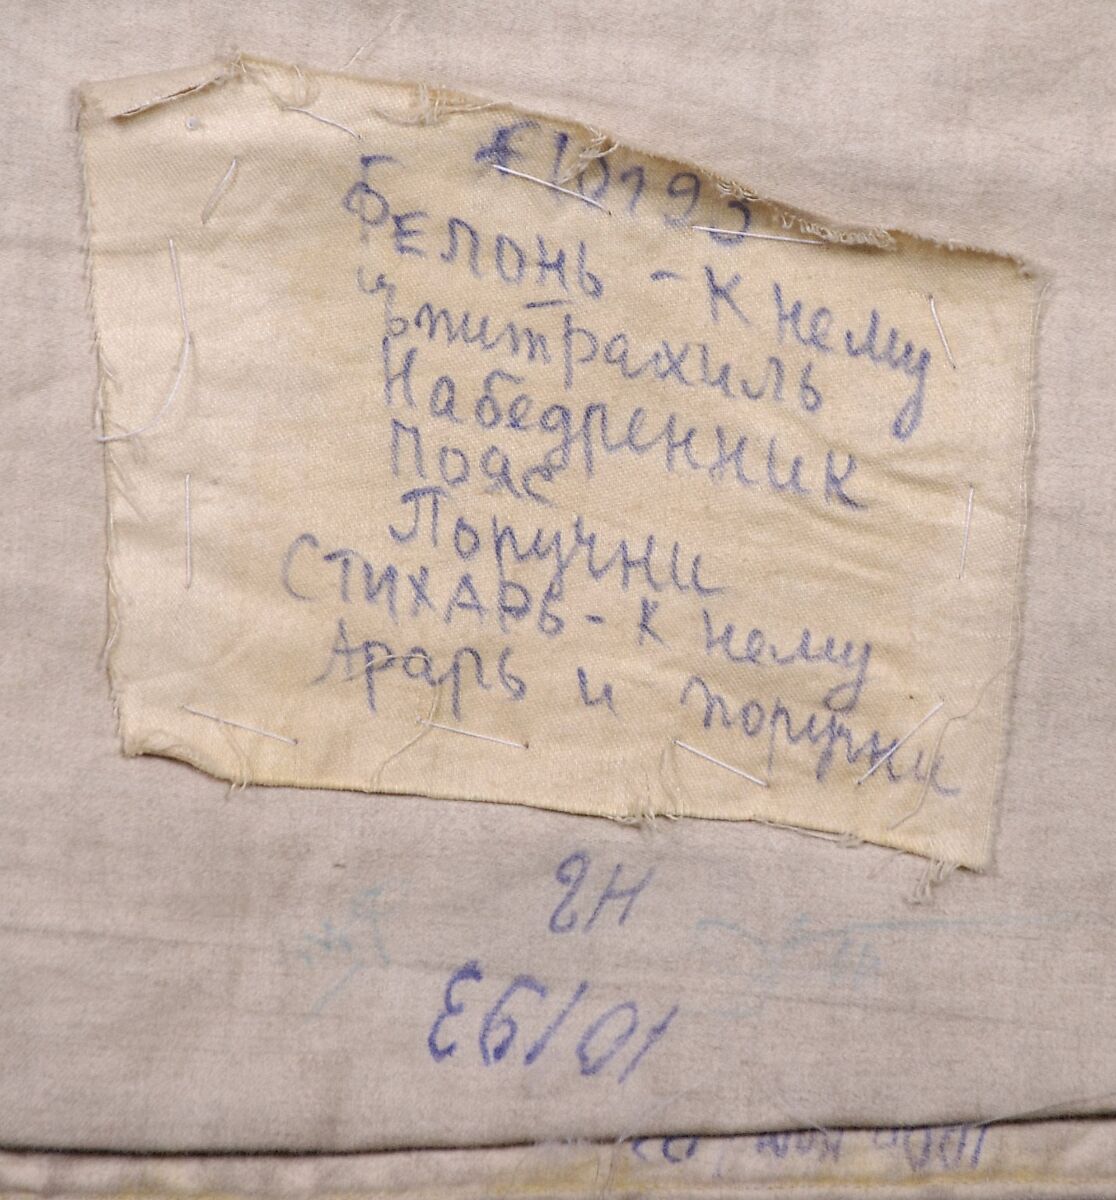 10193
ФЕЛОНЬ - К нему
ъпитрахиль
Набедренник
Пояс
Поручни
СТИХАРЬ - К нему
Арарь и поручни
10193